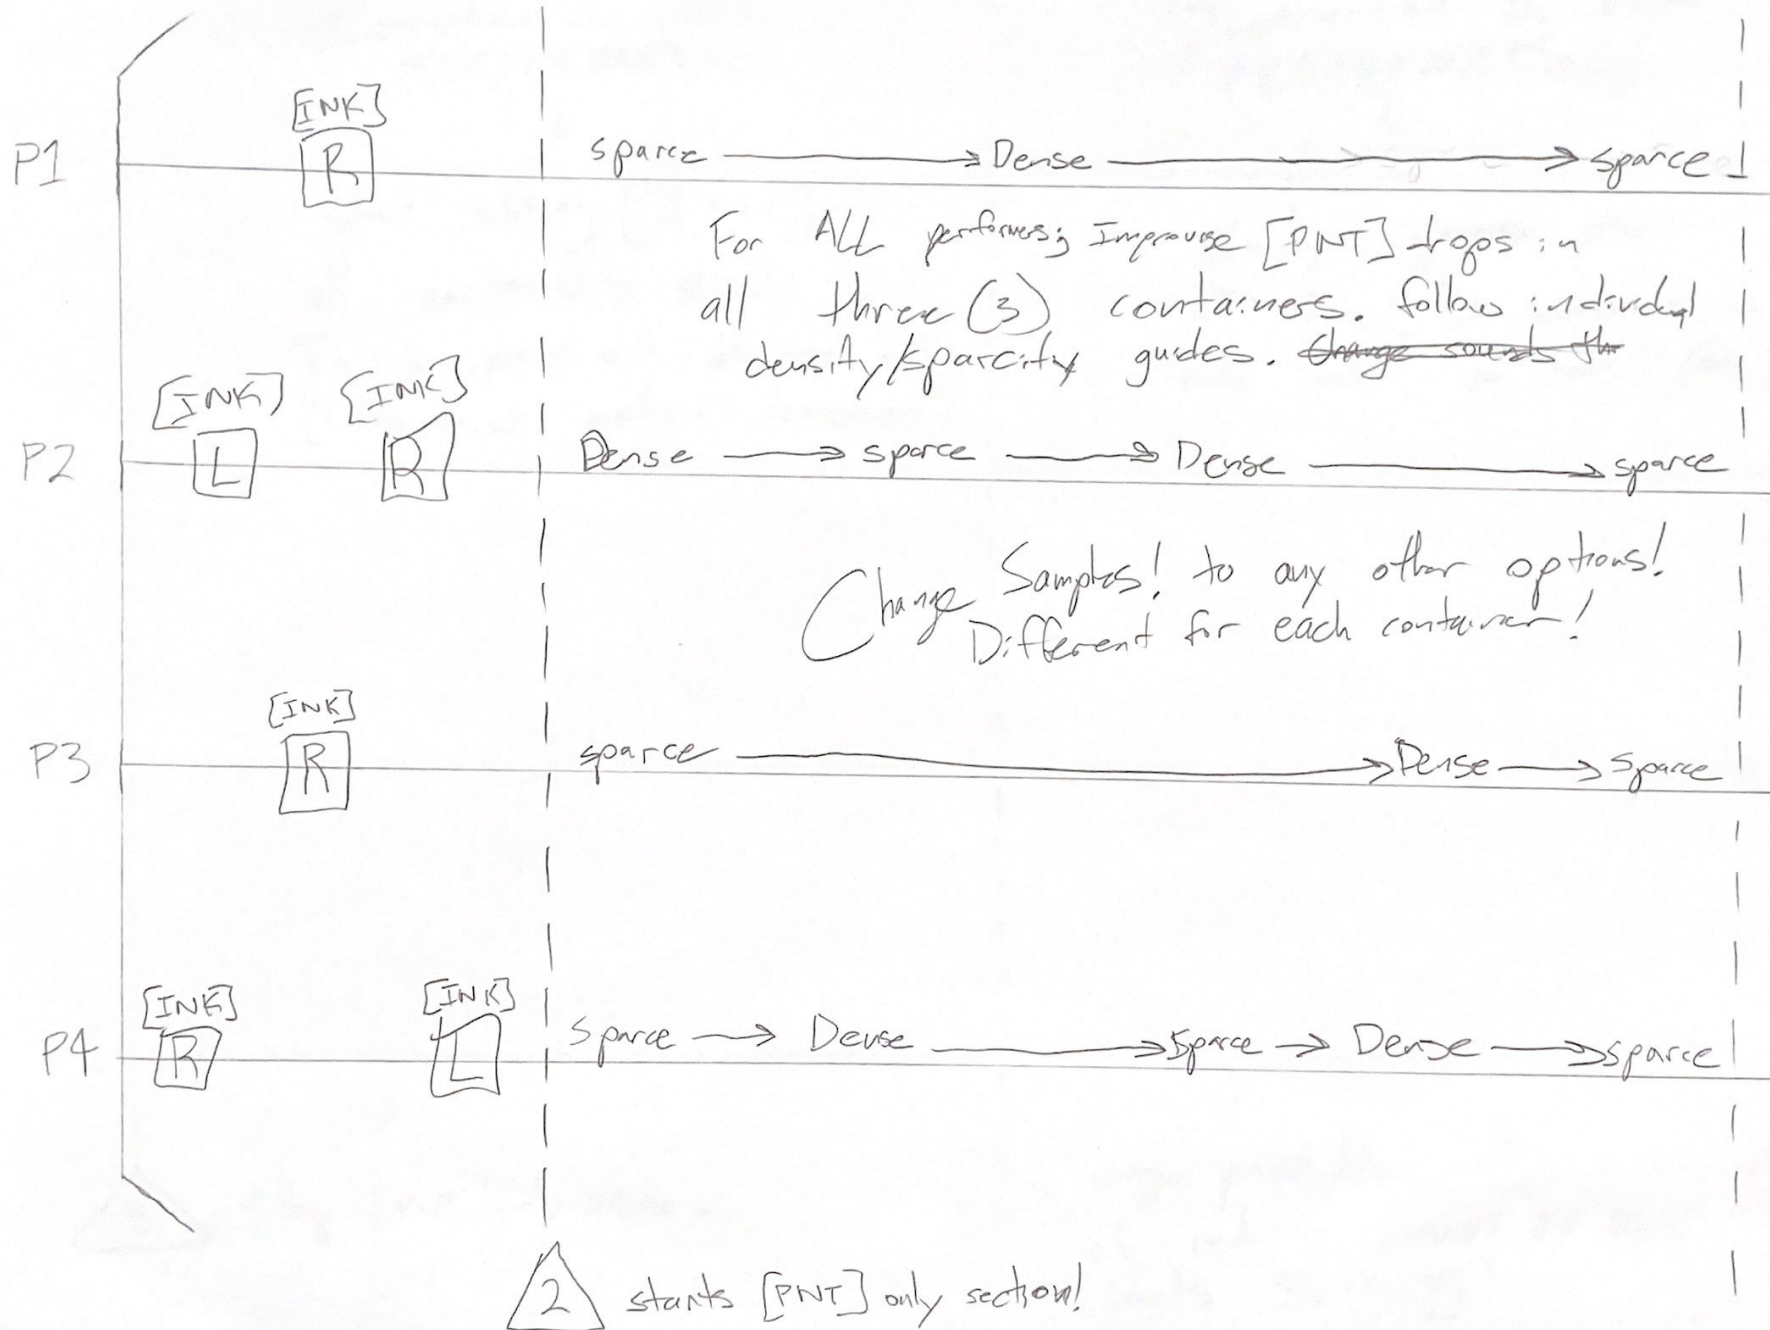 [INK]
P1 R sparce Dense sparce
For ALL performers; Improvise [PNT] drops in
all three (3) containers. follow individual
density/sparcity guides. Change sounds thr
[INK] [INK]
P2 L R Dense sparce Dense sparce
Change Samples! to any other options!
Different for each container!
[INK]
P3 R sparce Dense sparce
[INK] [INK]
P4 R L sparce Dense sparce Dense sparce
2 starts [PNT] only section!